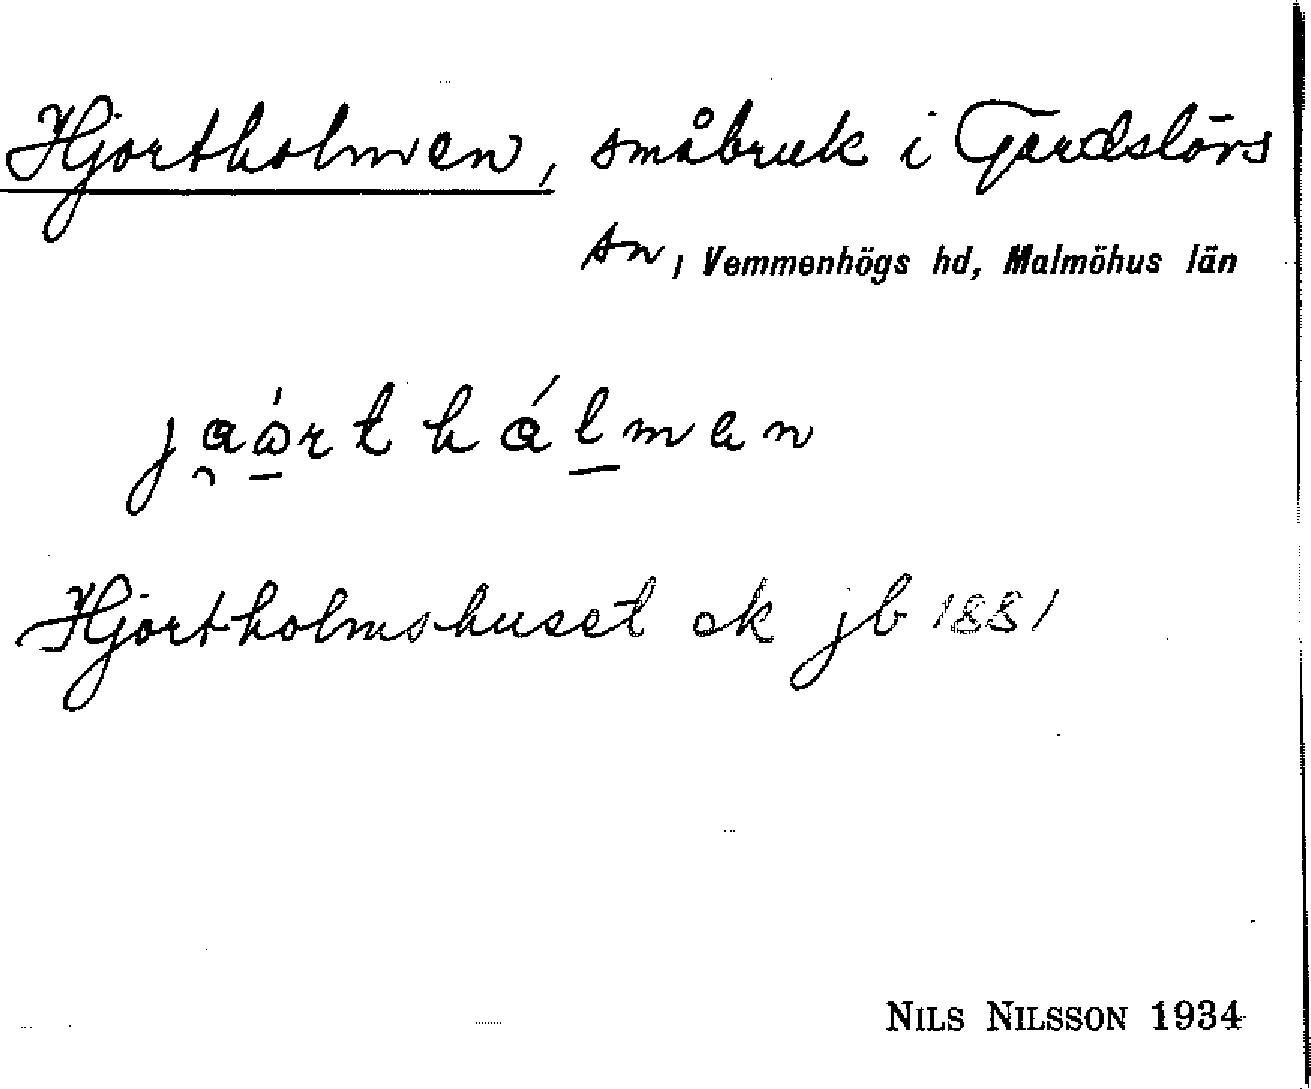 Hjortholmen, småbruk i Gärdslövs
sn, Vemmenhögs hd, Malmöhus län
Hjortholmshuset ek jb 1881
NILS NILSSON 1934